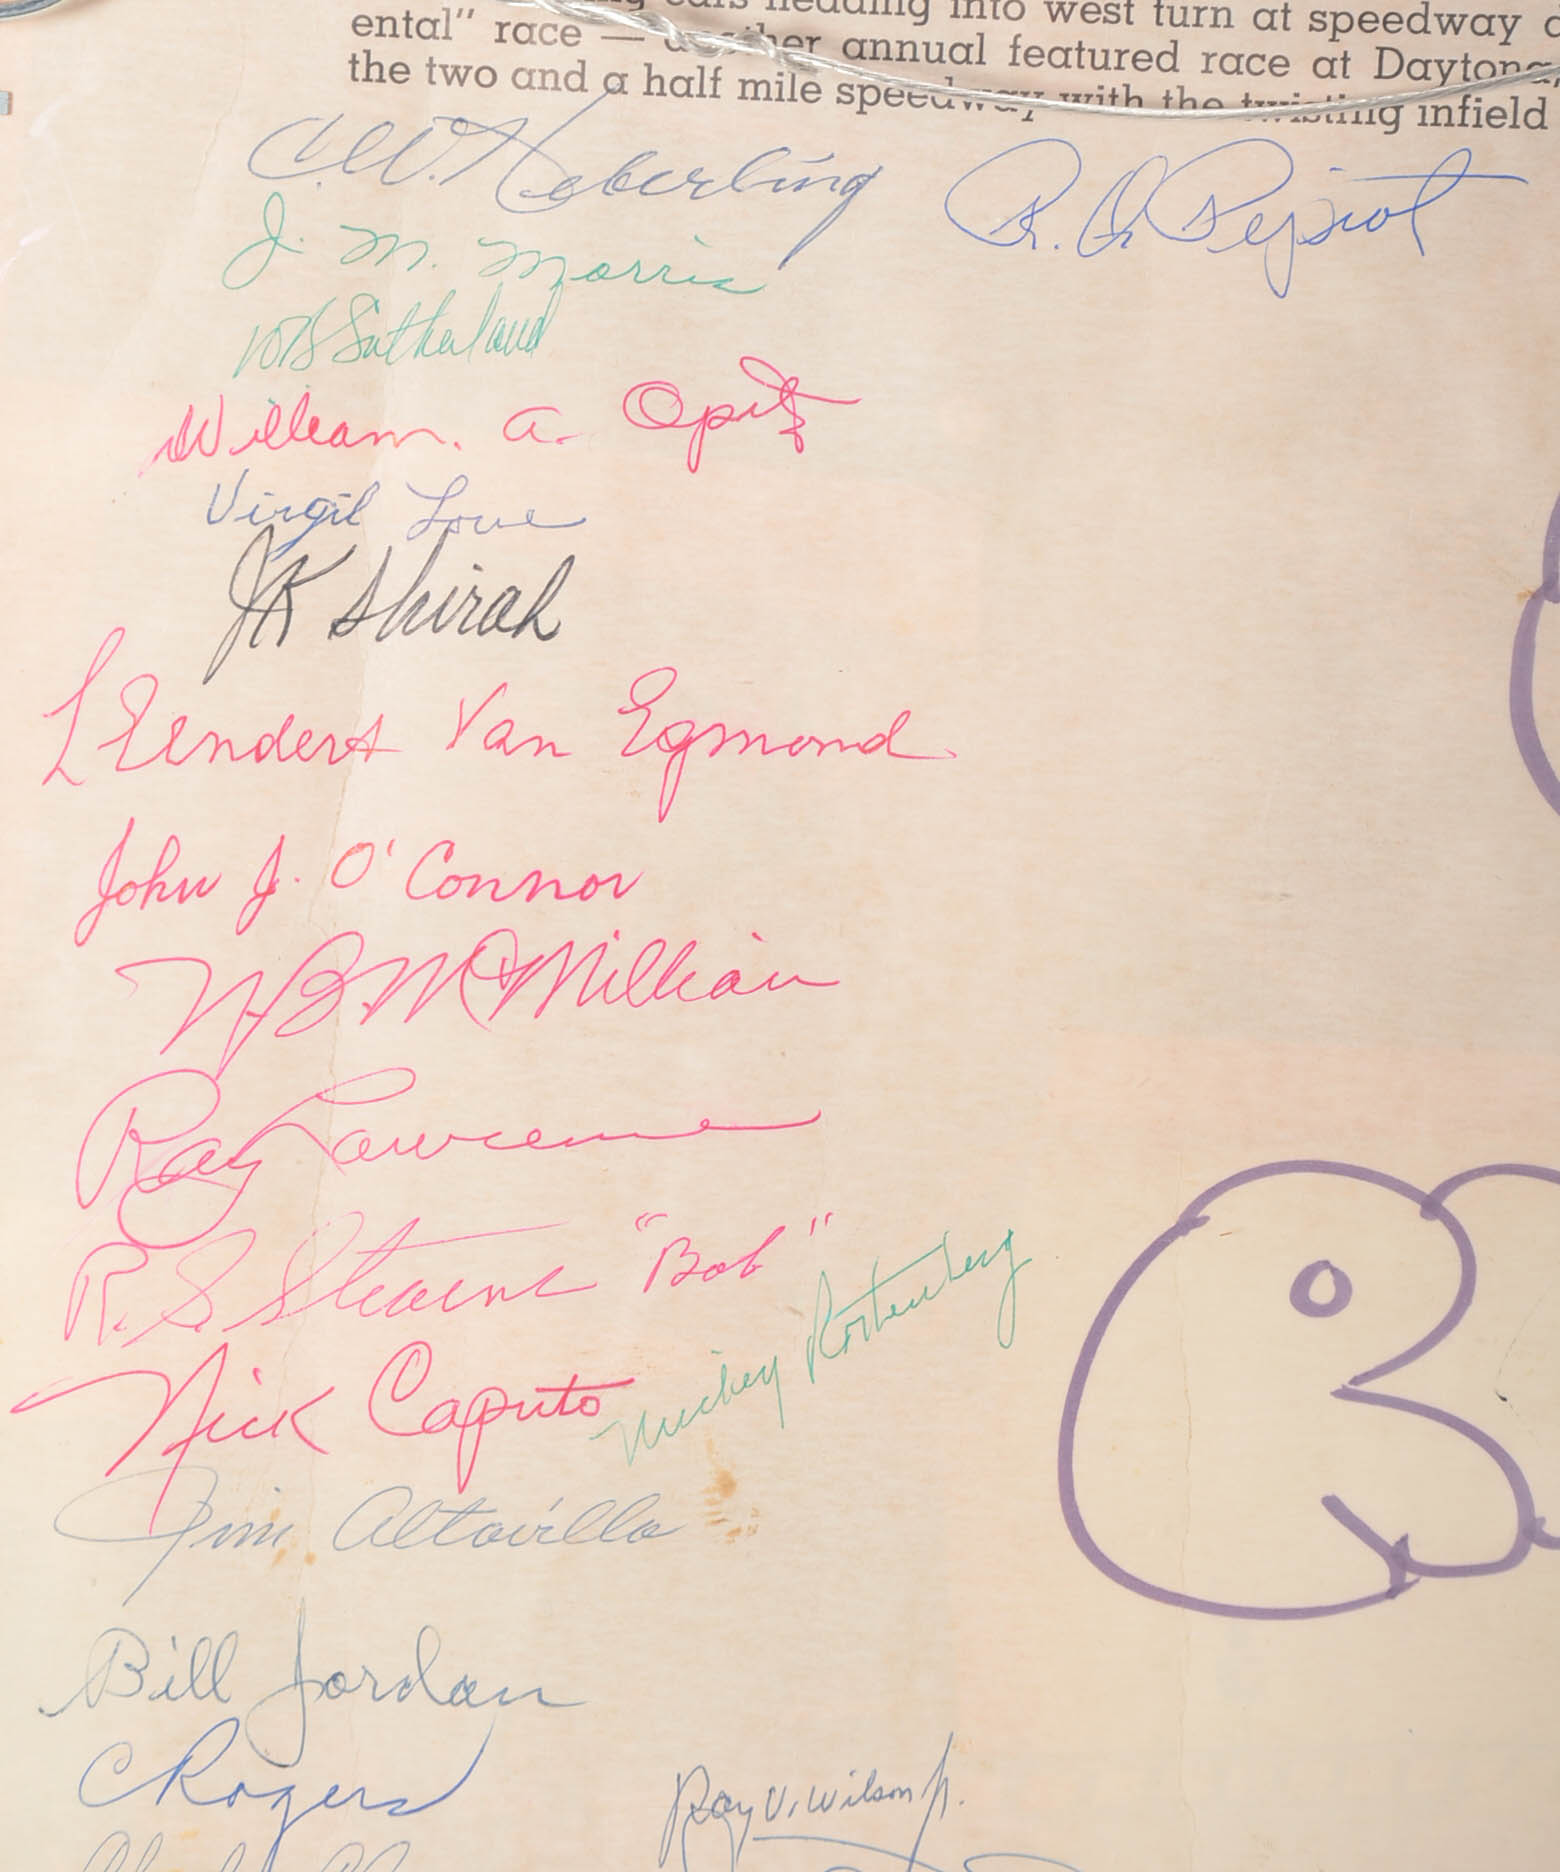 cars heading into west turn at speedway
ental" race — another annual featured race at Daytona,
the two and a half mile speedway with the twisting infield
C.W. Heberling
R. A. Pejsiot
J. M. Morris
Sutherland
William. A. Opitz
Virgil Love
JK Shirah
LEendert Van Egmond
John J. O'Connor
B. McMillian
Ray Lawrence
R. S. Stevens "Bob"
Nick Caputo
Mickey Rottenberg
Jim Altovilla
Bill Jordan
C Rogers
Ray V. Wilson Jr.